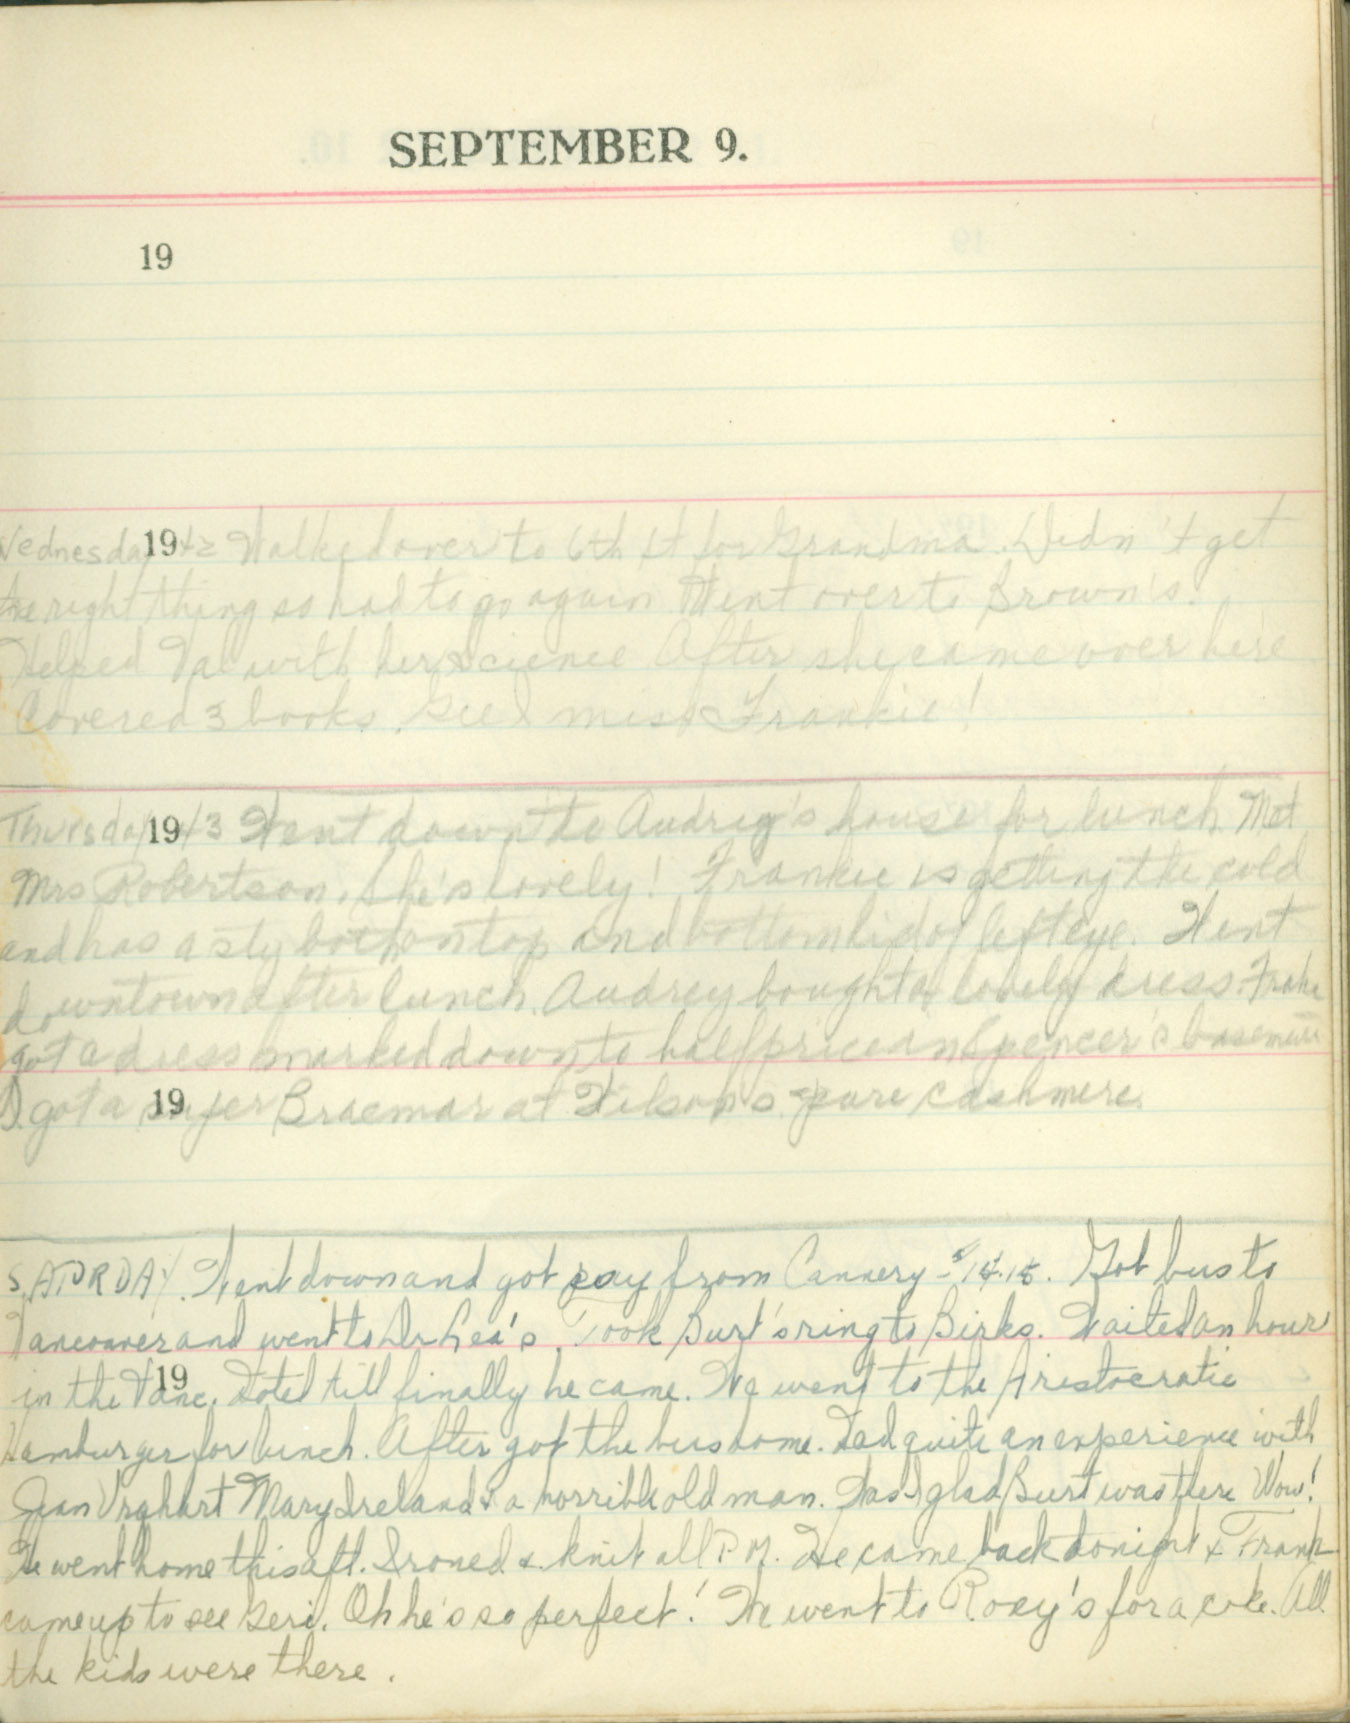 SEPTEMBER 9.
19
Wednesday 1942 Walked over to 6th St for Grandma. Didn't get
the right thing so had to go again Went over to Brown's.
Helped Val with her science After she came over here
Covered 3 books. Gee I miss Frankie!
Thursday 1943 Went down to Audrey's house for lunch. Met
Mrs Robertson. She's lovely! Frankie is getting the cold
and has a sty both on top and bottom lid of left eye. Went
downtown after lunch. Audrey bought a lovely dress.
got a dress marked down to half price in Spencer's basement
I got a super Braemar at Wilson's - pure cashmere.
19
SATURDAY. Went down and got pay from Cannery - $14.15. Got bus to
Vancouver and went to Dr Lea's. Took Burt's ring to Birks. Waited an hour
19
in the Vanc. Hotel till finally he came. We went to the Aristocratic
Hamburger for lunch. After got the bus home. Had quite an experience with
Jean Urghart Mary Ireland & a horrible old man. Was I glad Burt was there Wow!
He went home this aft. Ironed & knit all P.M. He came back tonight & Frank
came up to see Geri. Oh he's so perfect! We went to Roxy's for a coke. All
the kids were there.